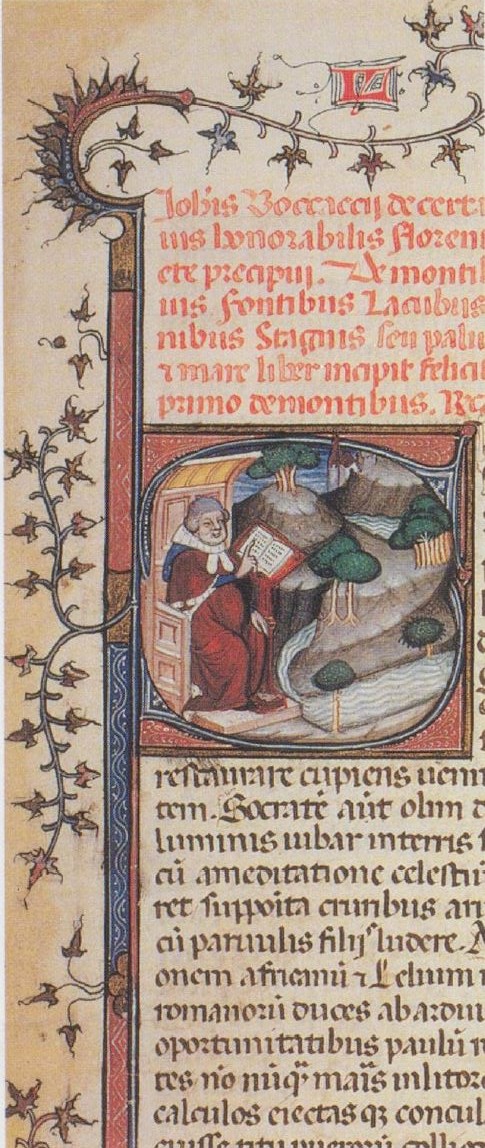 L
Joh̄is Boccaccij de cert
uis honorabilis floren
ete precipui. De monti
uis fontibus Lacubus
nibus Stagnis seu palu
⁊ mare liber incipit felici
primo de montibus. Ru
restaurare cupiens ueni
tem. Socratē aūt olim
luminis iubar in terris
cū a meditatione celesti
ret supposita cruribus
cū paruulis filijs ludere.
onem africanū ⁊ Lelium
romanorū duces ab ardui
oportunitatibus paulū
tes nō nūq̄ maīs in litore
calculos eiectas qꝫ concul